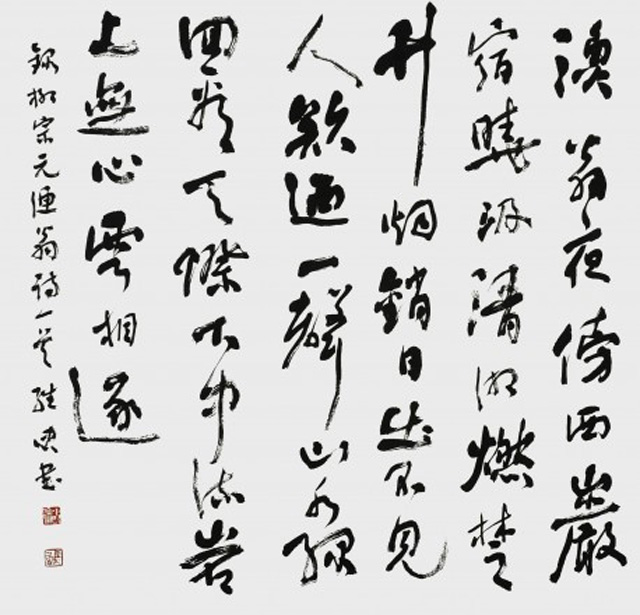 漁翁夜傍西巖
宿曉汲清湘燃楚
竹烟銷日出不見
人欸迺一聲山水緑
回看天際下中流岩
上無心雲相逐
錄柳宗元漁翁詩一首 書